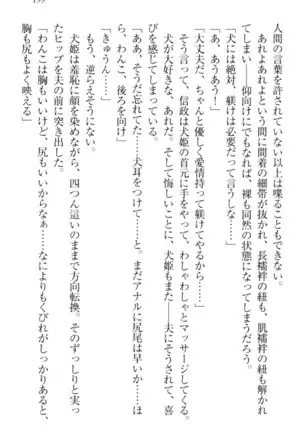 人間の言葉を許されていない以上は喋ることもできない。
あれよあれよという間に間着の細帯が抜かれ、長襦袢の紐も、肌襦袢の紐も解かれ
てしまう――仰向けにでもなれば、裸も同然の状態になってしまうだろう。
「犬には絶対、躾けは必要だって言うしな」
「あ、あうあう！」
「大丈夫だ、ちゃんと優しく愛情持って躾けてやるから……」
犬が大好きな、あれだ。信政は犬姫の首元に手をやって、わしゃわしゃとマッサージし
てくれる。……そう、そして悔しいことに、犬姫もまた――夫にそうされて、喜
びを感じてしまっていた。
「ああ、そうだ忘れてた……犬耳をつけて……と。まだアナルに尻尾は早いか……ほ
ら、わんこ、後ろを向け」
「きゅうん……」
もう、逆らえそうにない。
犬姫は羞恥に顔を染めながら、四つん這いのままで方向転換。そのずっしりと実っ
たヒップを夫の前に突き出した。
「わんこは胸もいいけど、尻もいいからなぁ……なによりもくびれがしっかりあると、
胸も尻もよく映える」
199